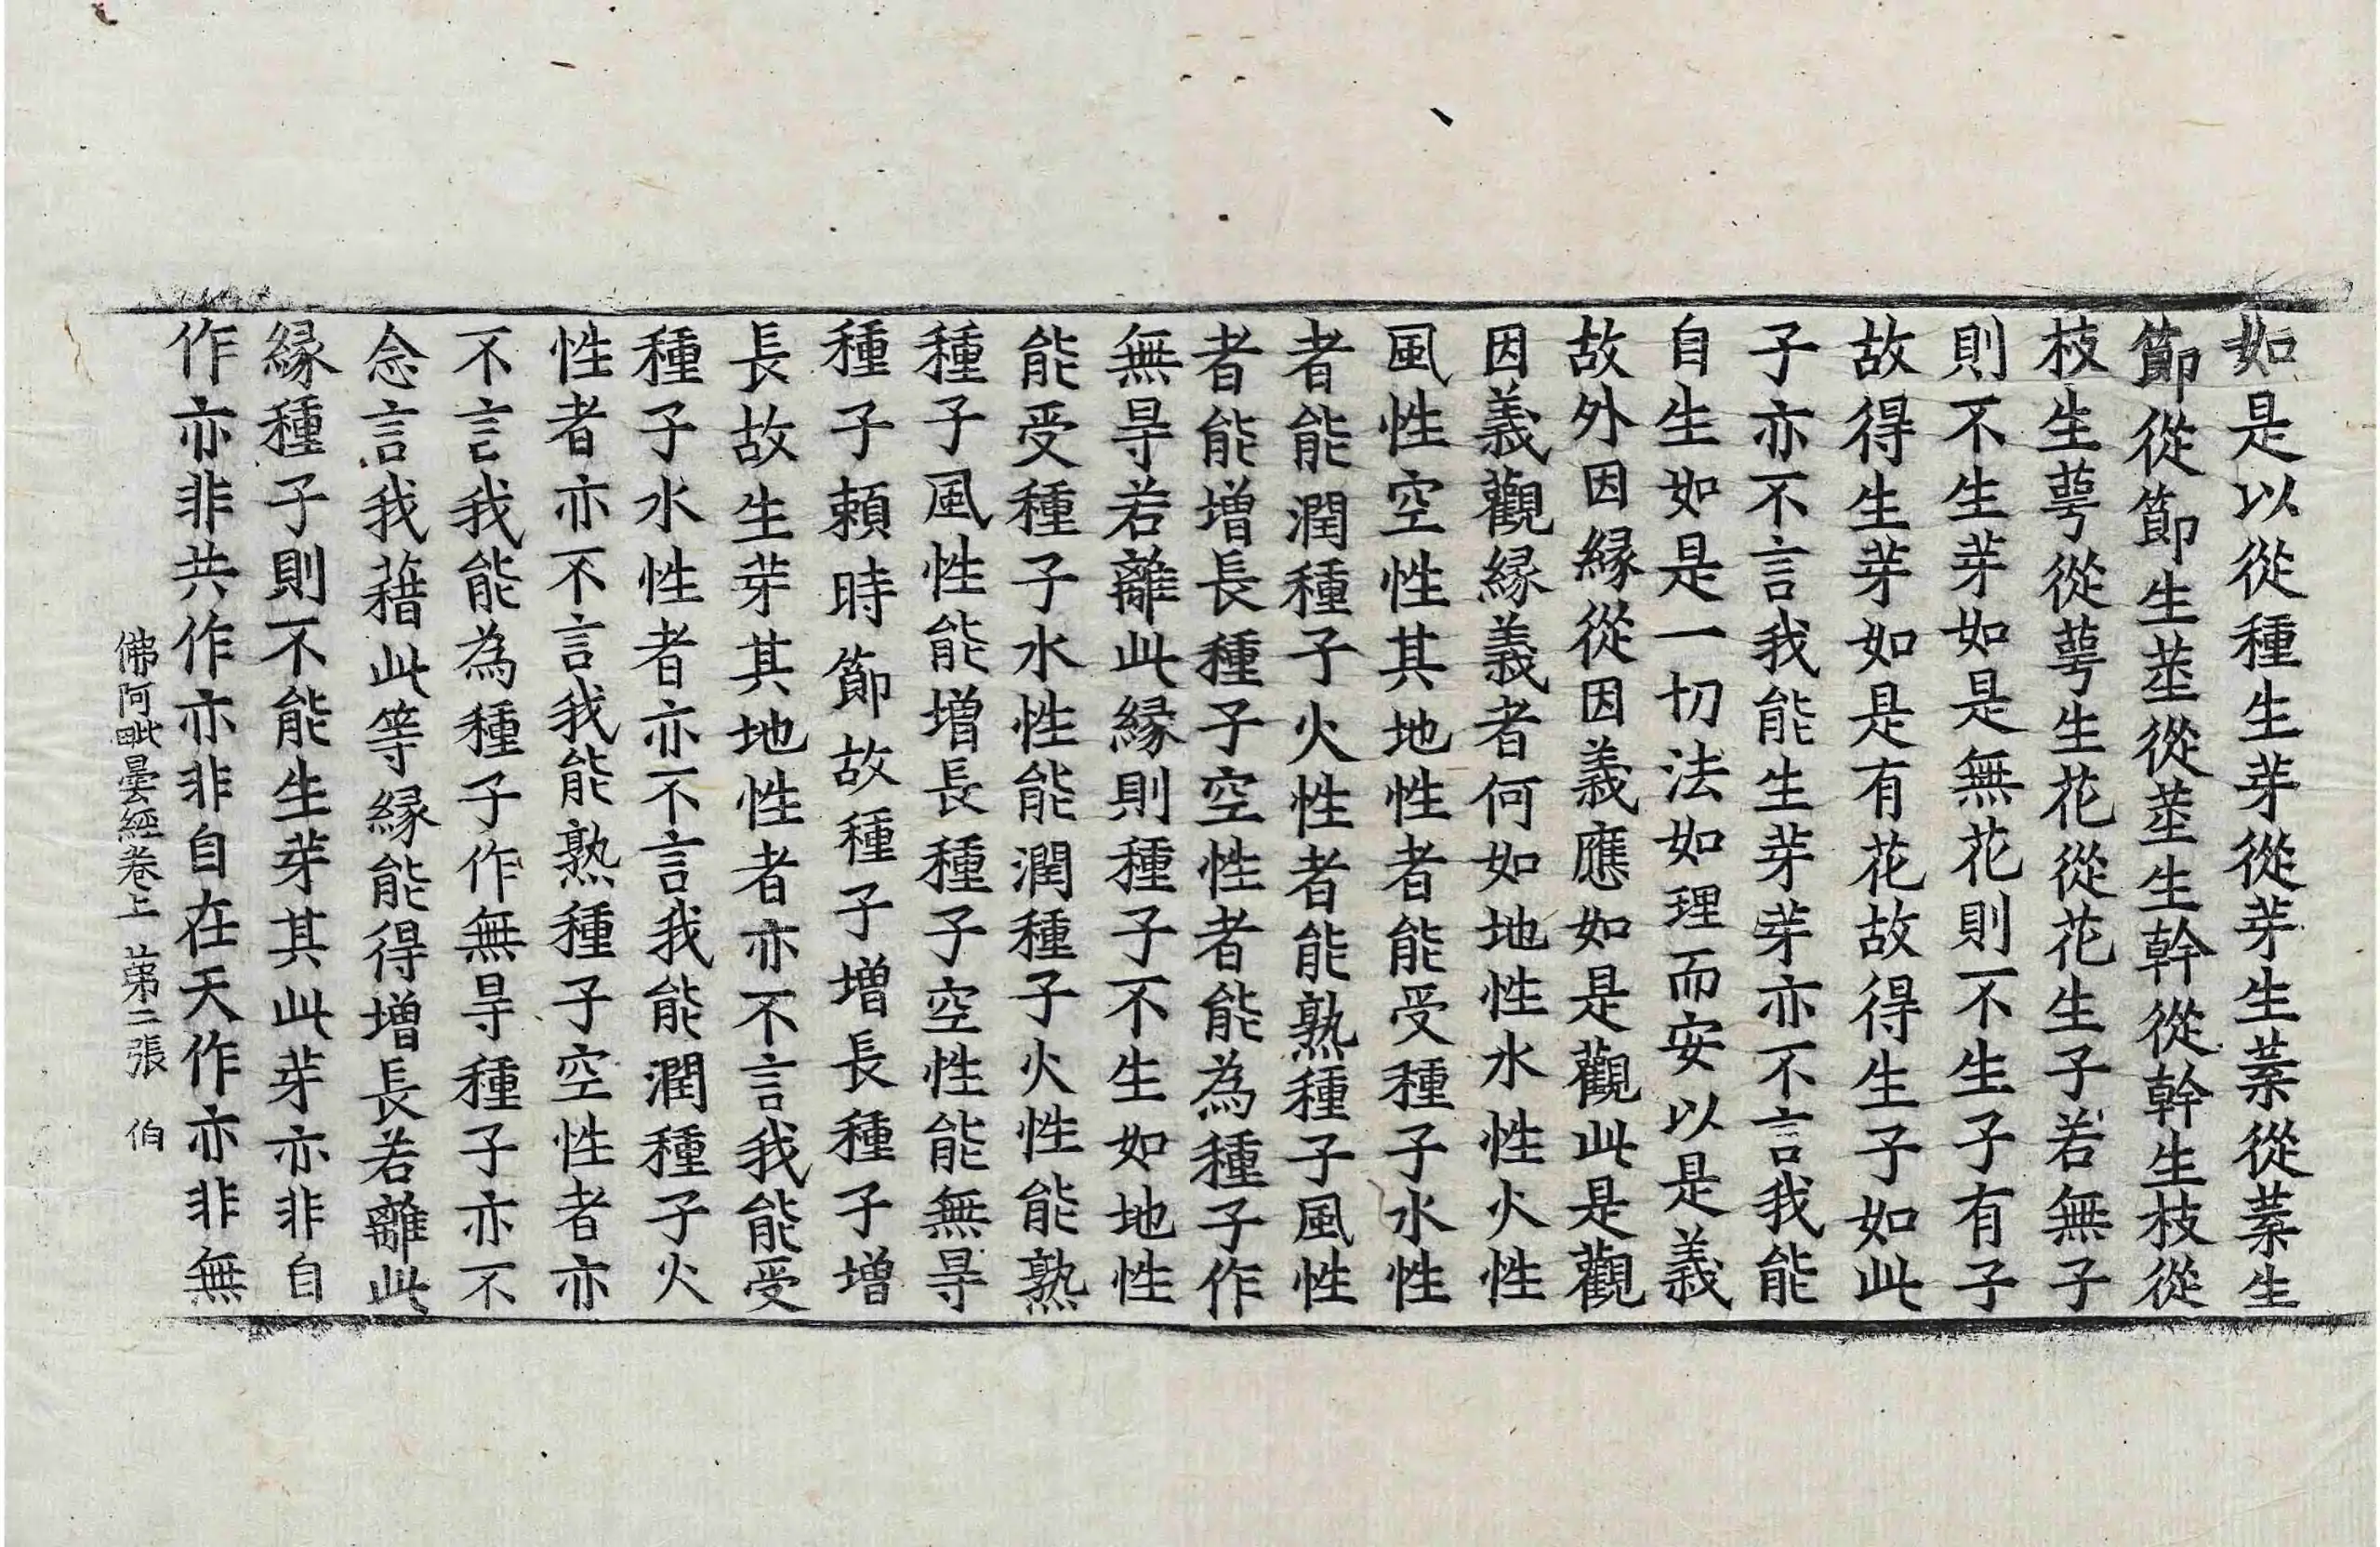 如是以從種生芽從芽生蓁從蓁生
節從節生莖從莖生幹從幹生枝從
枝生萼從萼生花從花生子若無子
則不生芽如是無花則不生子有子
故得生芽如是有花故得生子如此
子亦不言我能生芽芽亦不言我能
自生如是一切法如理而安以是義
故外因緣從因義應如是觀此是觀
因義觀緣義者何如地性水性火性
風性空性其地性者能受種子水性
者能潤種子火性者能熟種子風性
者能增長種子空性者能為種子作
無㝵若離此緣則種子不生如地性
能受種子水性能潤種子火性能熟
種子風性能增長種子空性能無㝵
種子頼時節故種子增長種子增
長故生芽其地性者亦不言我能受
種子水性者亦不言我能潤種子火
性者亦不言我能熟種子空性者亦
不言我能為種子作無㝵種子亦不
念言我藉此等緣能得增長若離此
緣種子則不能生芽其此芽亦非自
作亦非共作亦非自在天作亦非無
佛阿毗曇經卷上 苐二張 伯